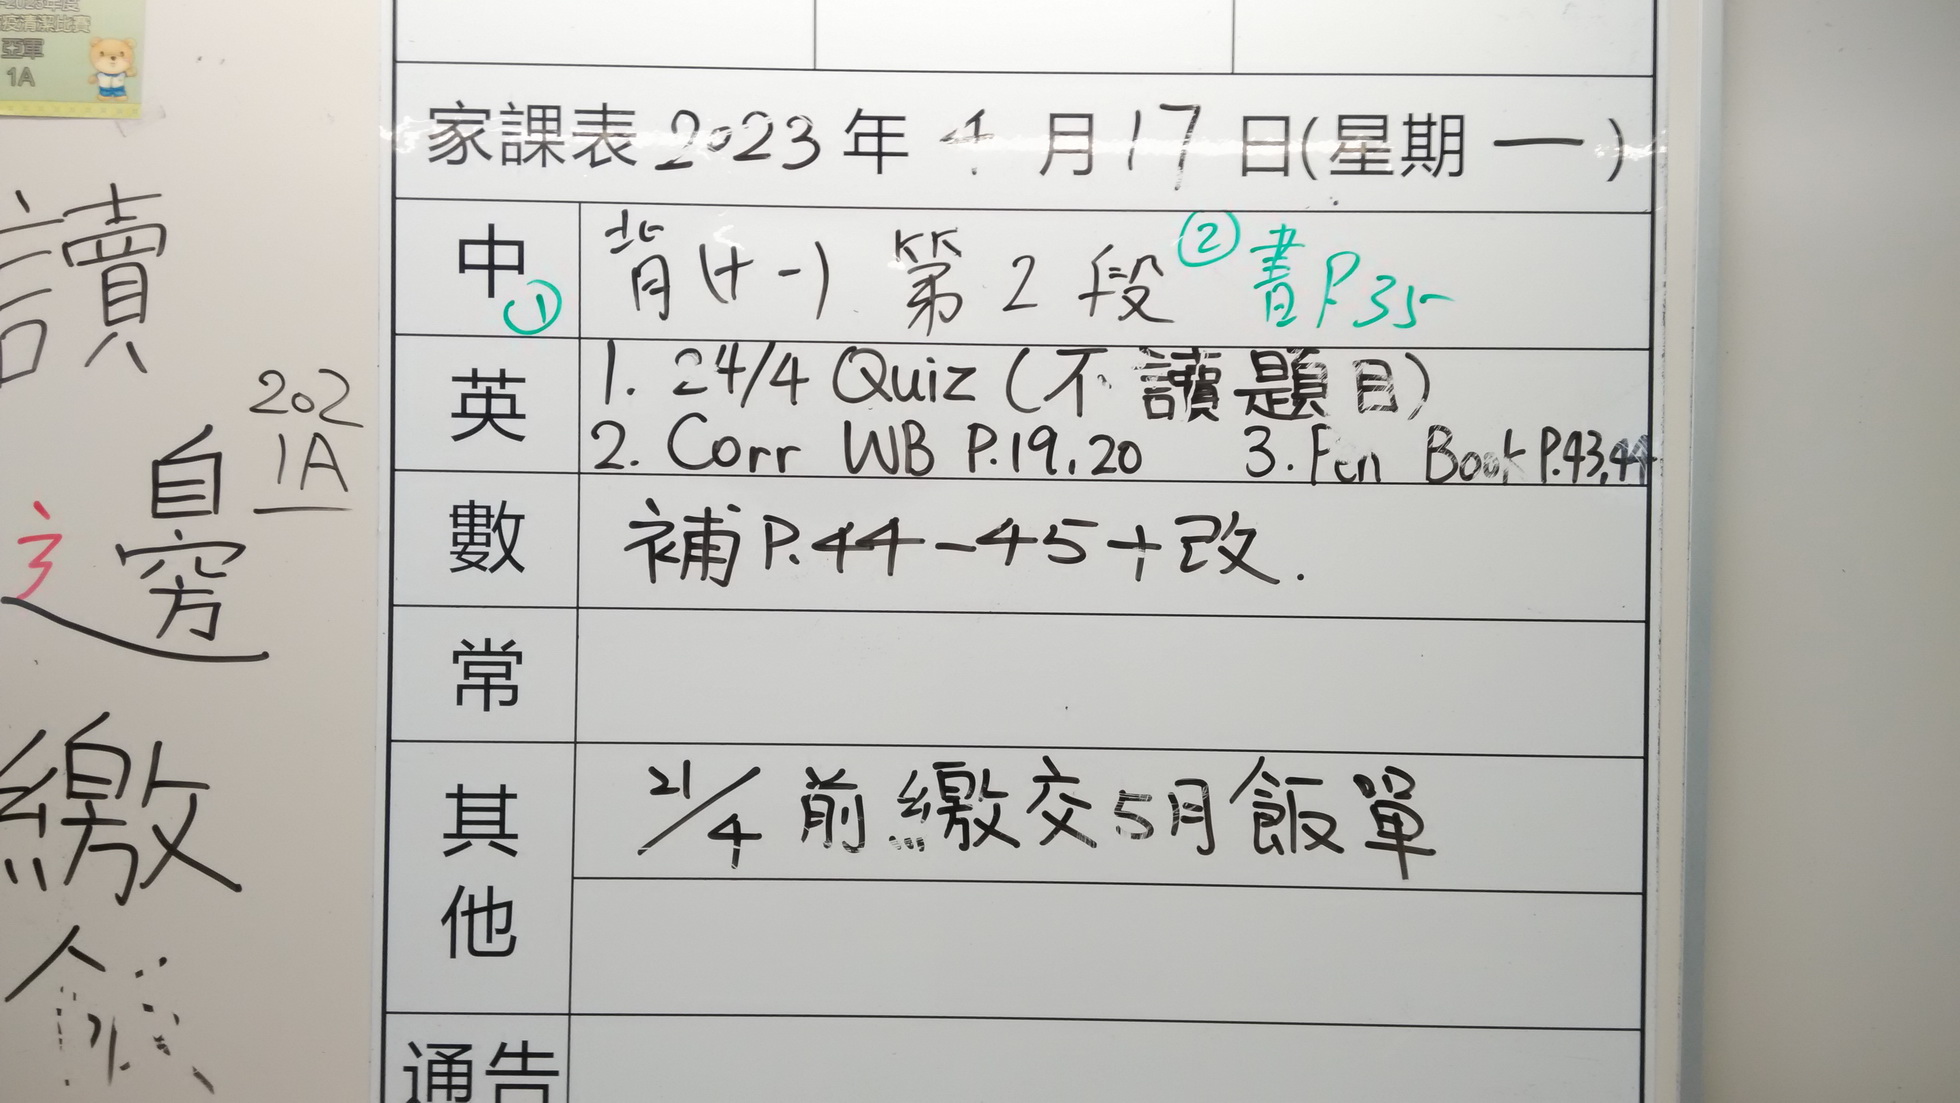 亞軍
1A
讀
202
1A
邊
繳
家課表 2023 年 4 月 17 日(星期 一 )
中 ① 背(十一) 第 2 段 ② 書P35
英 1. 24/4 Quiz (不讀題目)
2. Corr WB P.19,20 3. Fen Book P.43,44
數 補P.44-45+改.
常
其他 21/4 前繳交5月飯單
通告